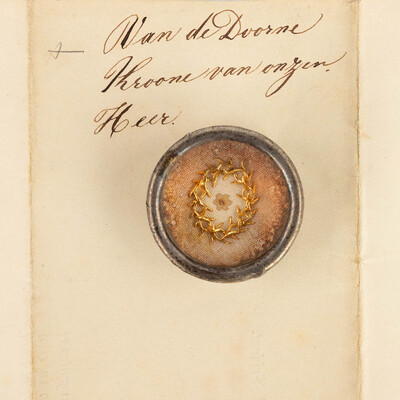 Van de Doorne
Kroone van onzen.
Heer.